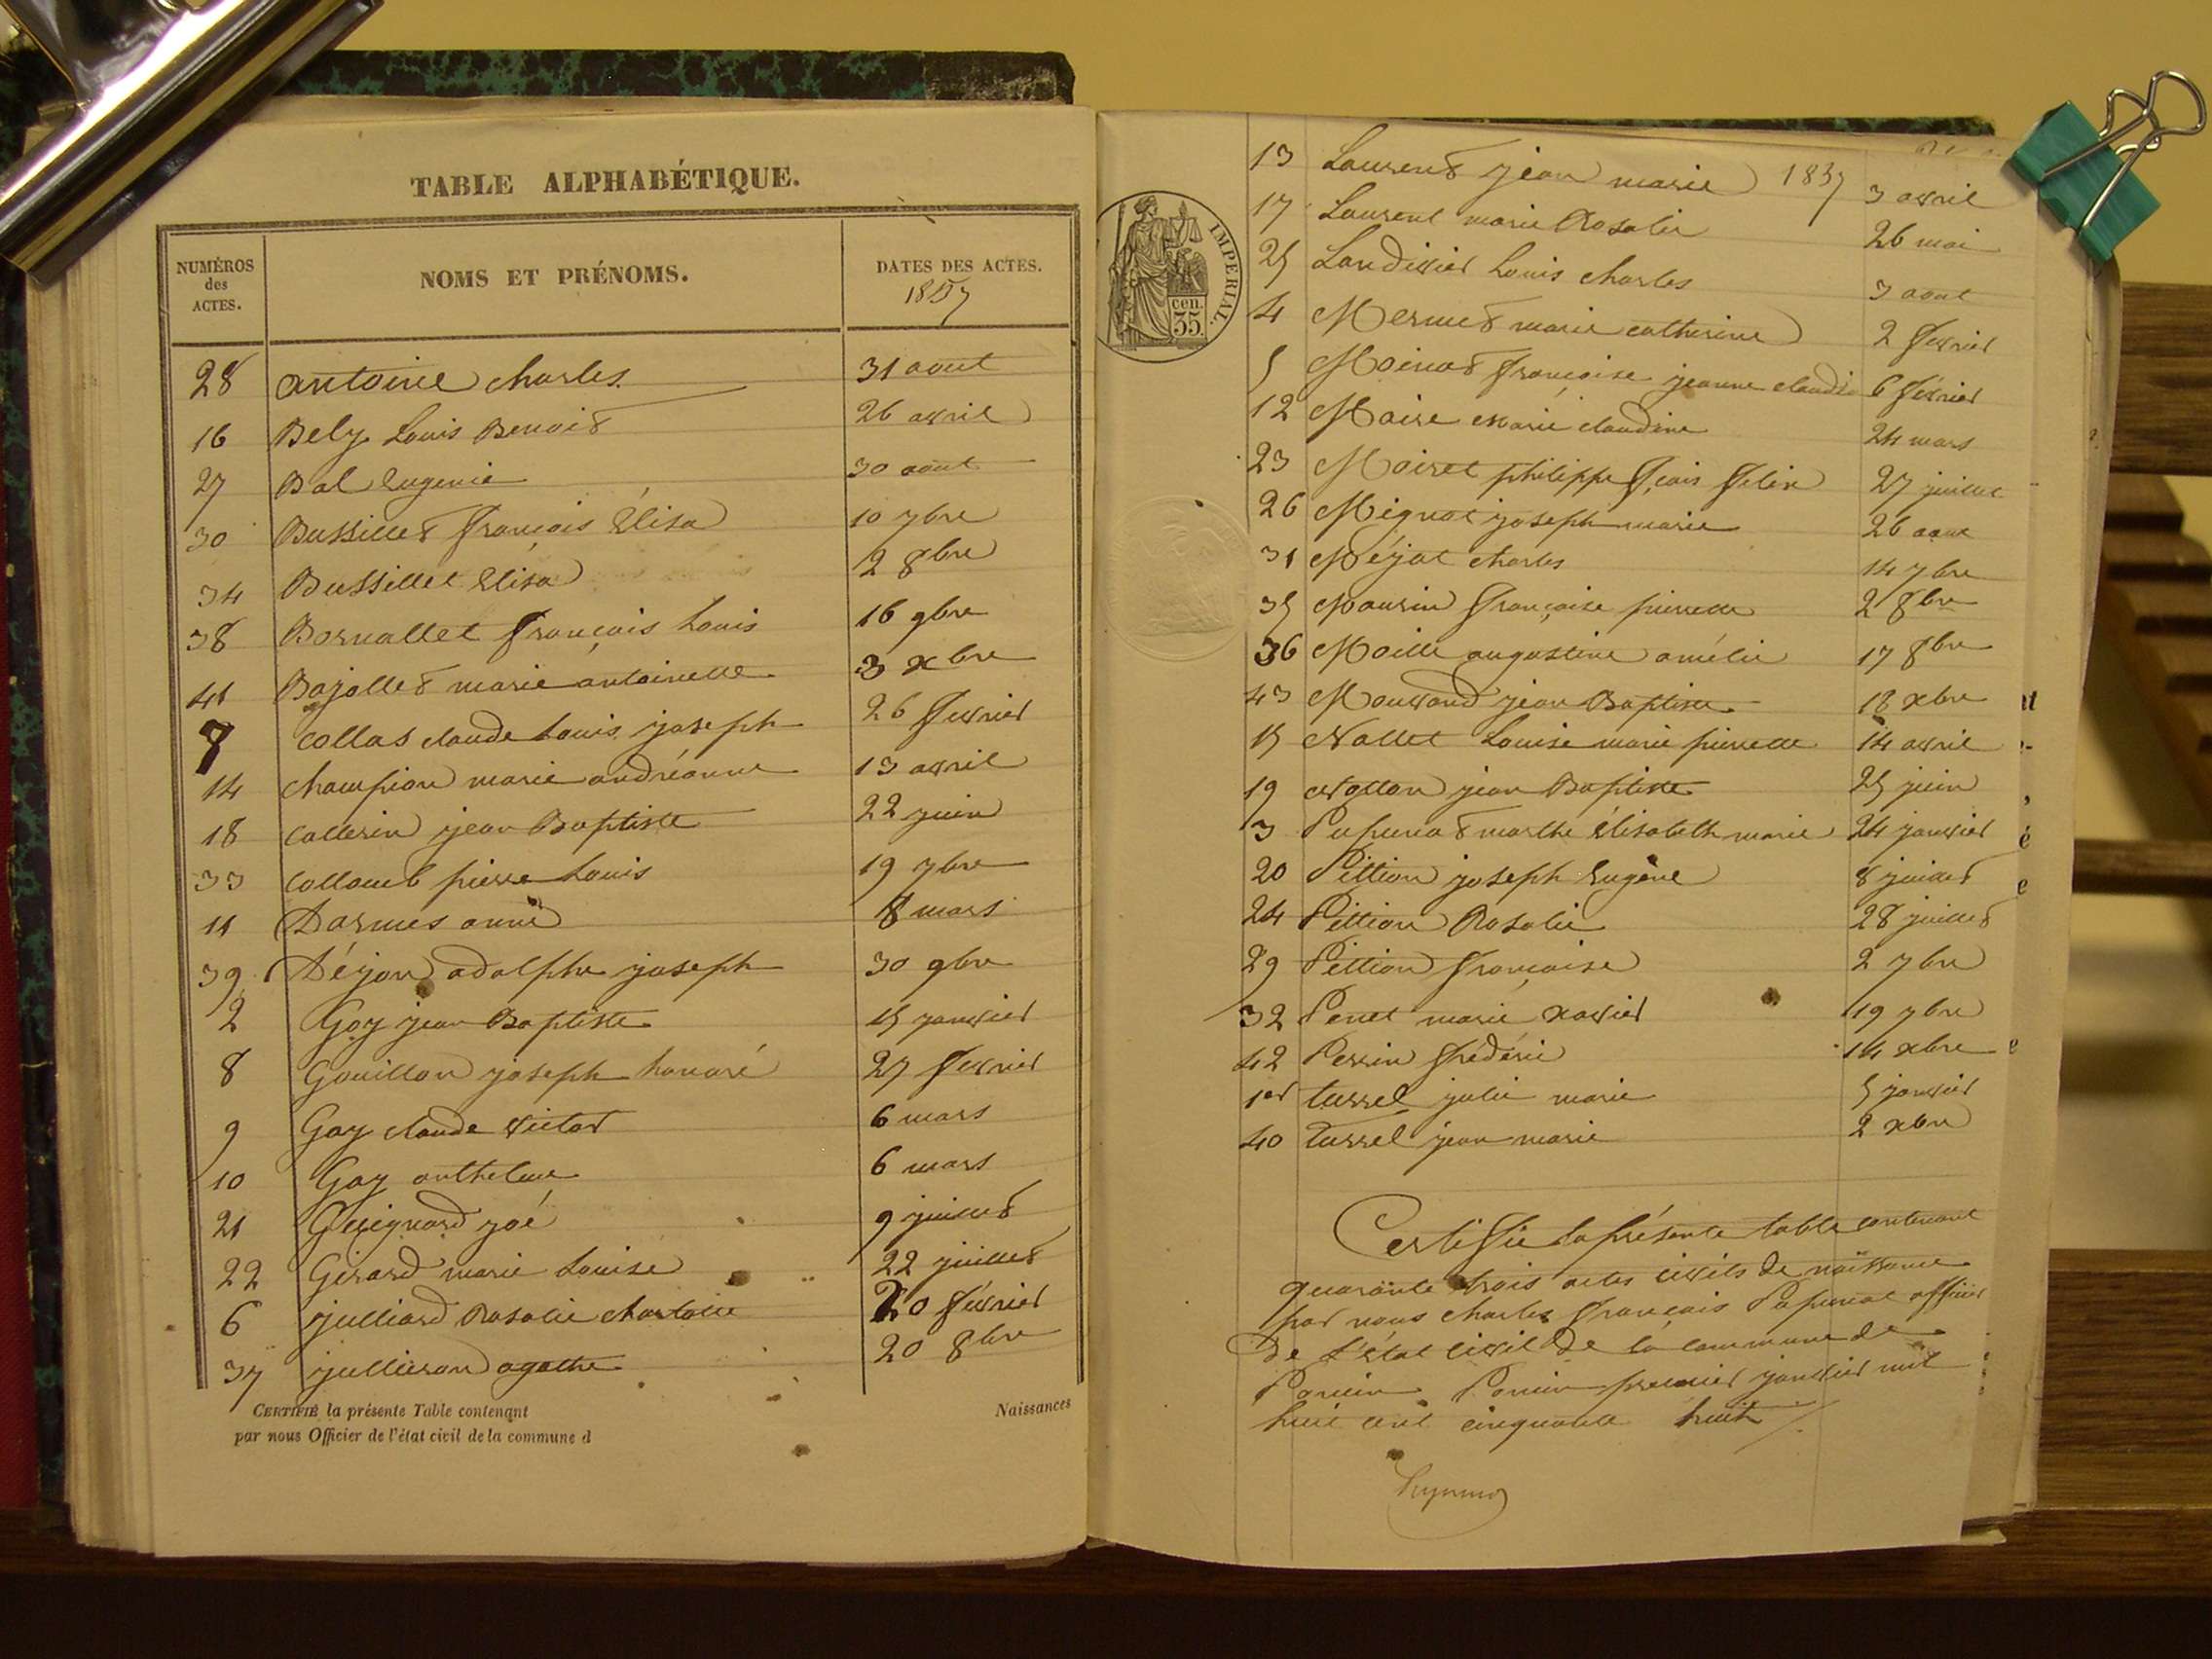 TABLE ALPHABÉTIQUE.
NUMÉROS des ACTES.
NOMS ET PRÉNOMS.
DATES DES ACTES.
1857
28 antoine charles 31 aout
16 Bely Louis Benoit 26 avril
27 Bal Eugenie 30 aout
30 Bussillet françois Elisa 10 7bre
34 Bussillet Elisa 2 8bre
38 Bornallet françois Louis 16 9bre
41 Bojollet marie antoinette 3 xbre
7 Collas claude Louis joseph 26 fevrier
14 champion marie andréanne 13 avril
18 Callerin jean Baptiste 22 juin
33 Collomb pierre Louis 19 7bre
11 Darmes anne 8 mars
39 Déjon adolphe joseph 30 9bre
2 Goy jean Baptiste 15 janvier
8 Gouillon joseph honoré 27 fevrier
9 Goy claude victor 6 mars
10 Goy anthelme 6 mars
21 Guignard zoé 9 juillet
22 Girard marie Louise 22 juillet
6 julliard Rosalie charlotte 20 février
37 jullieron agathe 20 8bre
CERTIFIÉ la présente Table contenant
par nous Officier de l'état civil de la commune d
Naissances
IMPERIAL.
35 cen.
13 Laurent jean marie 1857 3 avril
17 Laurent marie Rosalie 26 mai
25 Landivier Louis charles 3 aout
4 Mermet marie catherine 2 fevrier
5 Moinat françoise jeanne claudi 6 février
12 Moire marie claudine 24 mars
23 Moiret philippe fçois felix 27 juillet
26 Mignot joseph marie 26 aout
31 Méjat charles 14 7bre
35 Maurin françoise pierrette 2 8bre
36 Moille augustine amélie 17 8bre
43 Mouvand jean Baptiste 18 xbre
15 Nallet Louise marie pierrette 14 avril
19 jean Baptiste 25 juin
3 Papunat marthe Elisabeth marie 24 janvier
20 Pittion joseph Eugène 8 juillet
24 Pittion Rosalie 28 juillet
29 Pittion françoise 2 7bre
32 Penet marie xavier 19 7bre
42 Perrin frédéric 14 xbre
1er tussel julie marie 5 janvier
40 tussel jean marie 2 xbre
Certifié la présente table contenant
quarante trois actes civils de naissance
par nous charles françois Papunat officier
de l'état civil de la commune de
Poncin Poncin premier janvier mil
huit cent cinquante huit